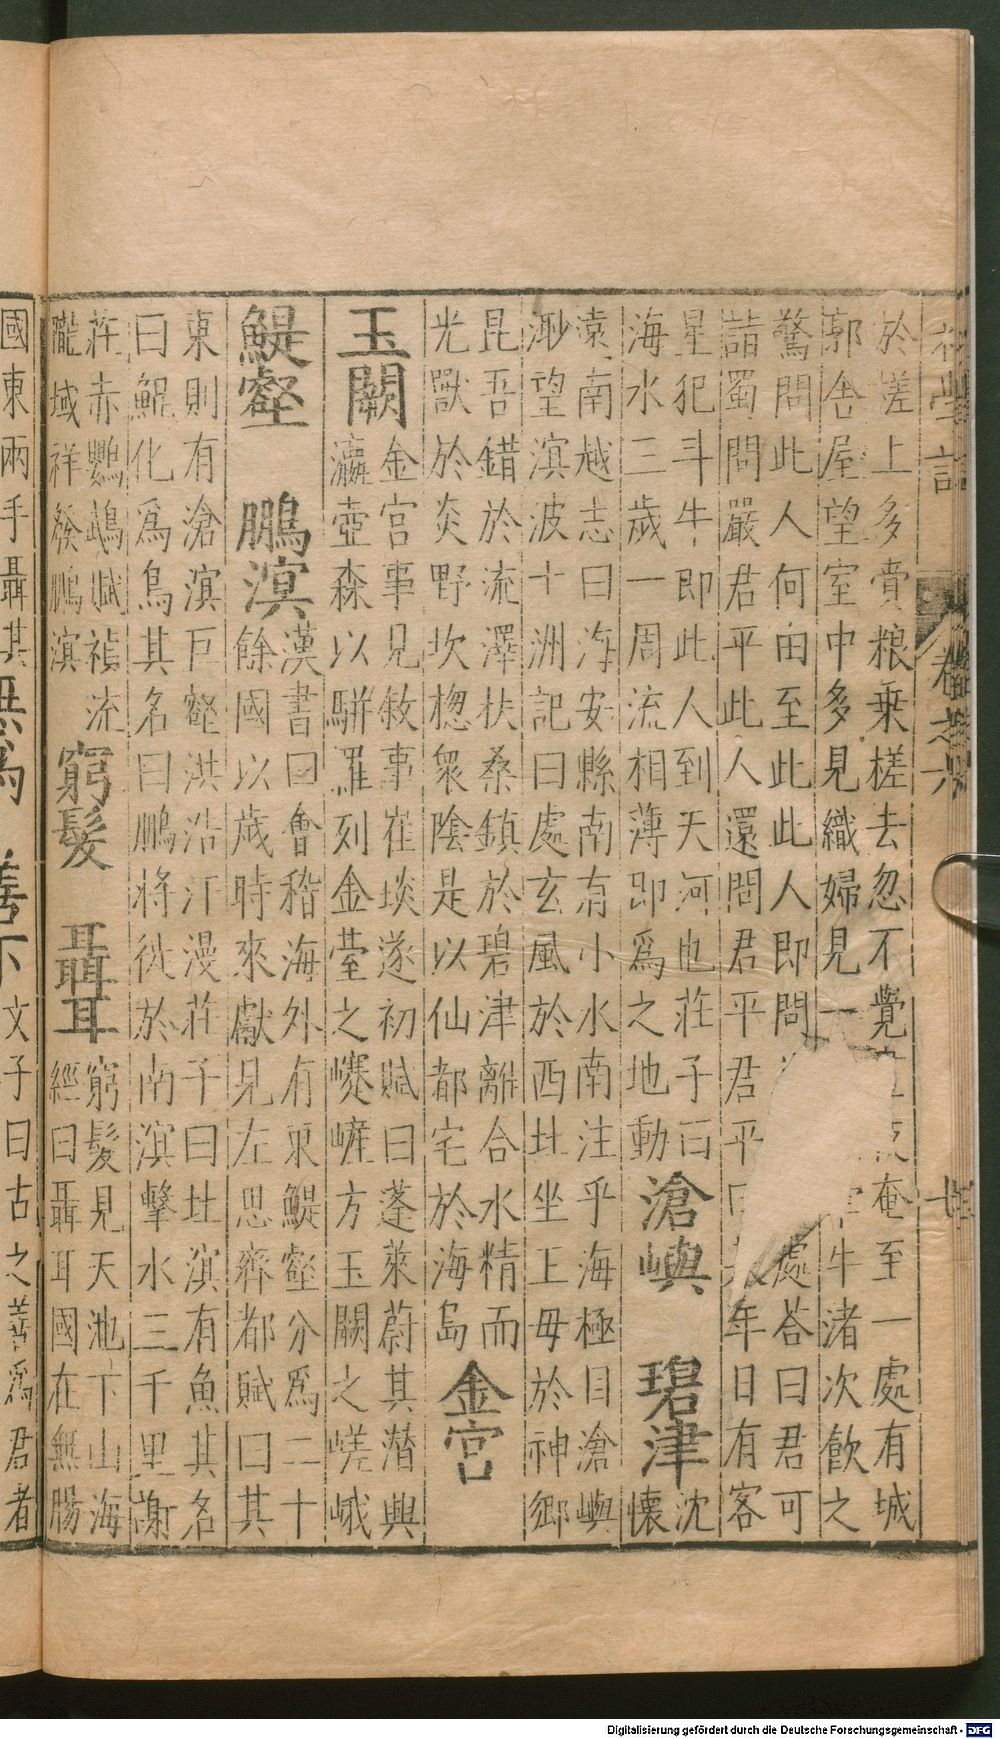 初學記 卷之六 七
於槎上多賫粮乗槎去忽不覺 奄至一處有城
郭舍屋望室中多見織婦見一 牛渚次飲之
驚問此人何由至此此人即問 處荅曰君可
詣蜀問嚴君平此人還問君平君平曰 年日有客
星犯斗牛即此人到天河也莊子曰
海水三歲一周流相薄即爲之地動
滄嶼
碧津
沈
懷
遠南越志曰海安縣南有小水南注乎海極目滄嶼
渺望溟波十洲記曰處玄風於西北坐王母於神鄉
昆吾錯於流澤扶桑鎮於碧津離合水精而
光獸於炎野坎揔衆陰是以仙都宅於海島
金宮
玉闕
金宮事見敘事崔琰遂初賦曰蓬萊蔚其潜興
瀛壺森以駢羅列金臺之㠑嵼方玉闕之嵯峨
鯷壑
鵬溟
漢書曰會稽海外有東鯷壑分爲二十
餘國以歲時來獻見左思齊都賦曰其
東則有滄溟巨壑洪浩汗漫莊子曰北溟有魚其名
曰鯤化爲鳥其名曰鵬將徙於南溟擊水三千里謝
莊赤鸚鵡賦禎流
隴域祥發鵬溟
窮髮
聶耳
窮髮見天池下山海
經曰聶耳國在無腸
國東兩手聶其
爲
善下
文子曰古之善爲君者
Digitalisierung gefördert durch die Deutsche Forschungsgemeinschaft - DFG